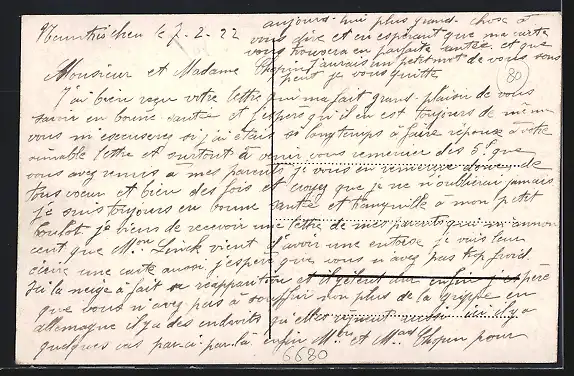 Neunkirchen le 7-2-22
Monsieur et Madame Chopin
J'ai bien reçu votre lettre qui ma fait grand-plaisir de vous
savoir en bonne-santé et j'espère qu'il en est toujours de même
vous m'escuserez si j'ai étais si longtemps à faire réponse à votre
aimable lettre et surtout à venir vous remercier des 5f que
vous avez remis a mes parents je vous en remercie de
tous coeur et bien des fois et croyez que je ne n'oublirai jamais
Je suis toujours en bonne santé et tranquille a mon petit
boulot je biens de recevoir une lettre de mes parents qui m'annon
cent que Mon Linck vient d'avoir une entorse je vais leur
ecrire une carte aussi j'espère que vous n'avez pas top froid
ici la neige a fait sa réapparition et il gèle dur enfin j'espère
que vous n'avez pas à souffrir non plus de la grippe en
allemagne il y a des endroits qu'elle il y a
quelques cas par-ci par-là enfin Mr et Mad Chopin pour
aujourd-hui plus grand-chose à
vous dire et en espérant que ma carte
vous trouvera en parfaite santée et que
j'aurais un petit mot de vous sous
peut je vous quitte
80
6680